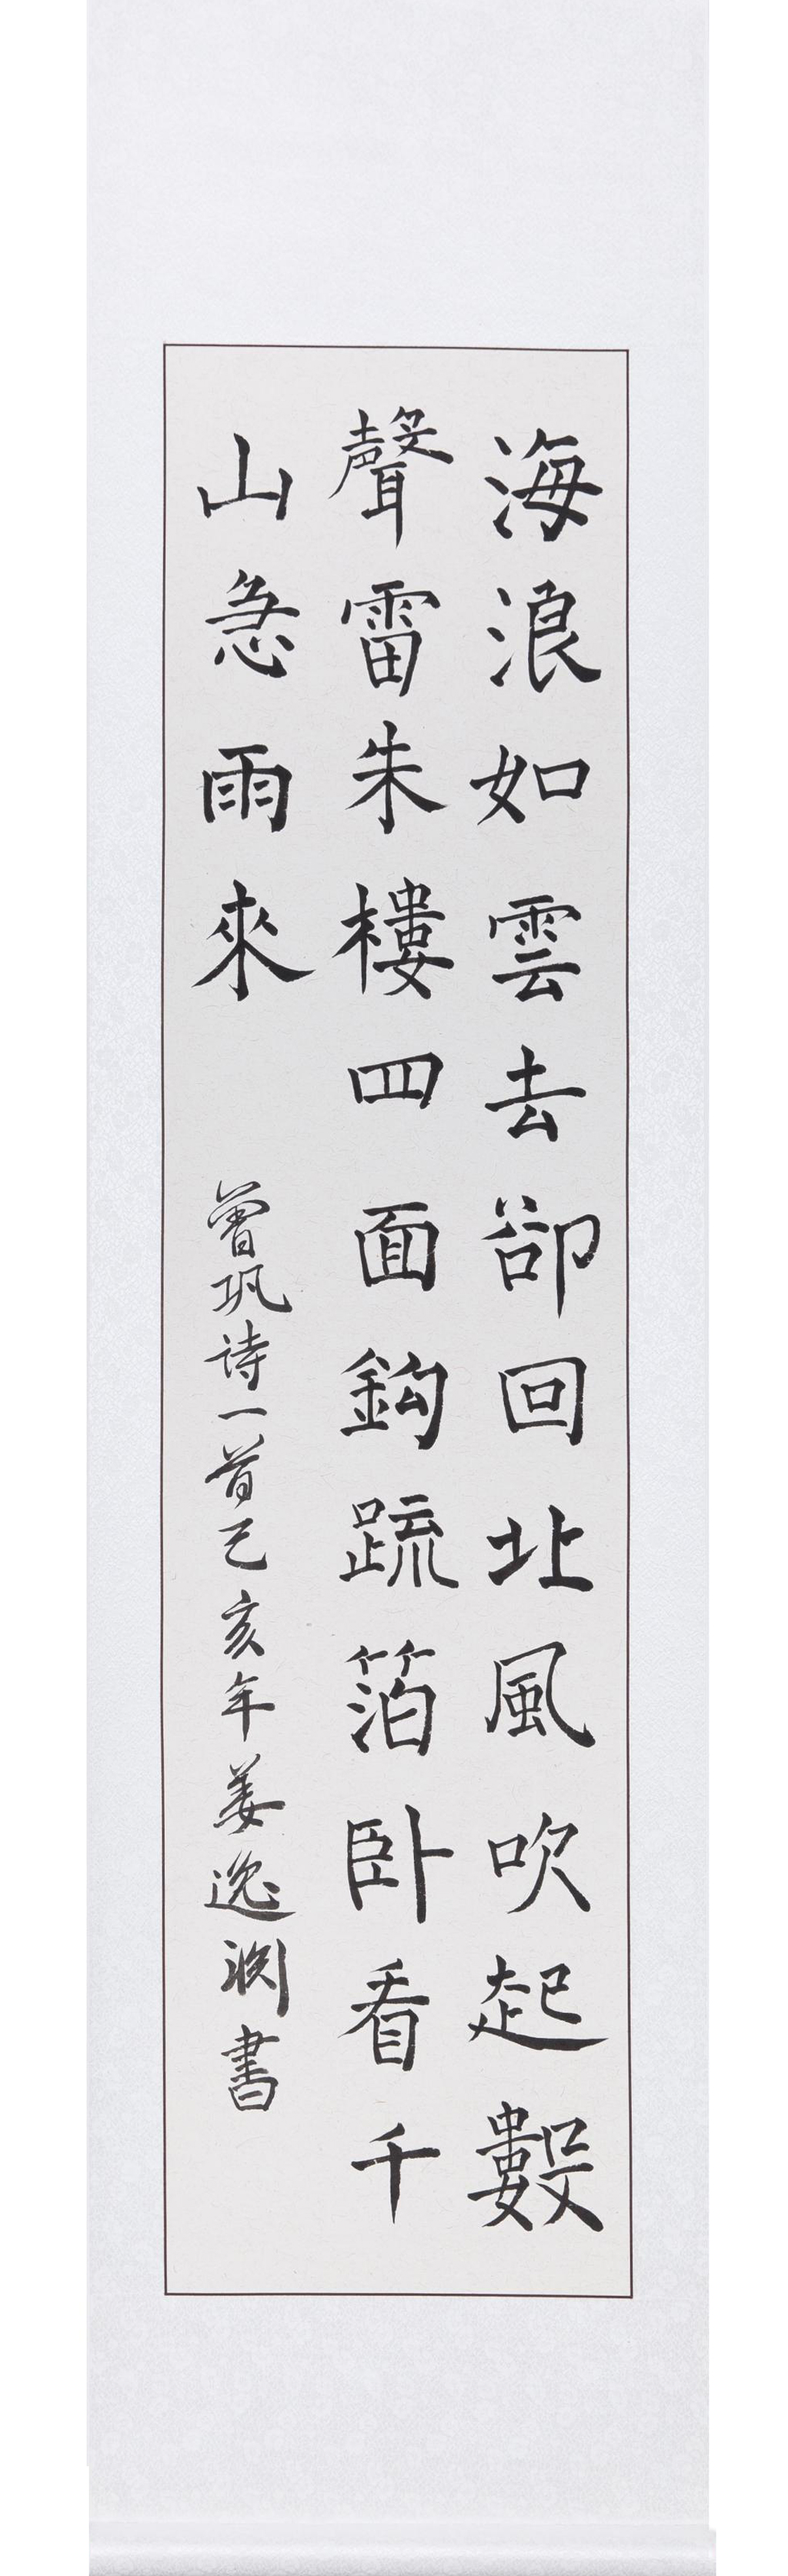 海浪如雲去卻回北風吹起數
聲雷朱樓四面鈎疏箔卧看千
山急雨來
曾巩诗一首己亥年姜逸渊書